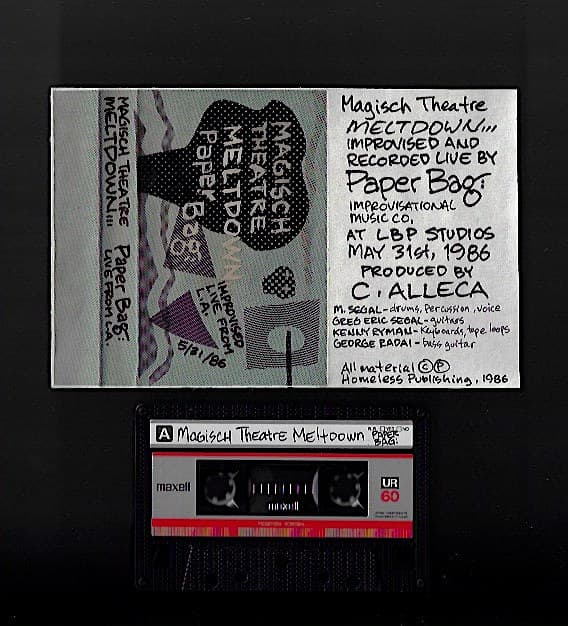 MAGISCH THEATRE
MELTDOWN...
Paper Bag:
LIVE FROM L.A.
MAGISCH
THEATRE
MELTDOWN
Paper Bag:
IMPROVISED
LIVE FROM
L.A.
5/31/86
Magisch Theatre
MELTDOWN,,,
IMPROVISED AND
RECORDED LIVE BY
Paper Bag:
IMPROVISATIONAL
MUSIC CO,
AT LBP STUDIOS
MAY 31st, 1986
PRODUCED BY
C. ALLECA
M. SEGAL - drums, percussion, voice
GREG ERIC SEGAL - guitars
KENNY RYMAN - Keyboards, tape loops
GEORGE RADAI - bass guitar
All material © ℗
Homeless Publishing, 1986
A MAGISCH THEATRE MELTDOWN PAPER
BAG:
maxell
maxell
UR
60